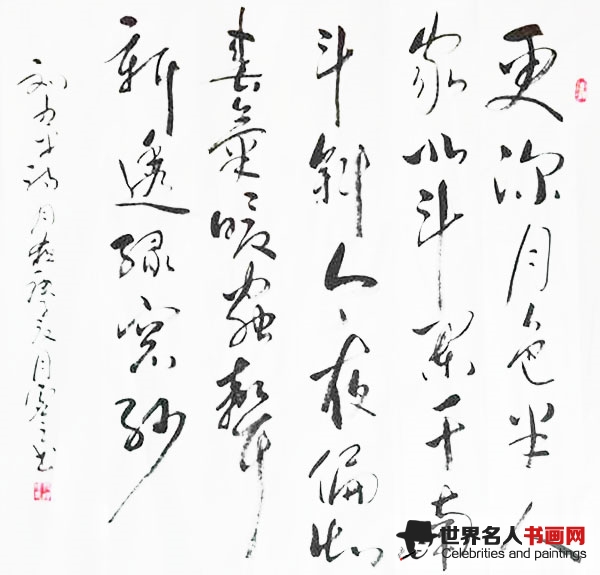 更深月色半人
家北斗阑干南
斗斜今夜偏知
春氣暖蟲聲
新透绿窗纱
刘方平诗月夜
世界名人书画网
Celebrities and paintings